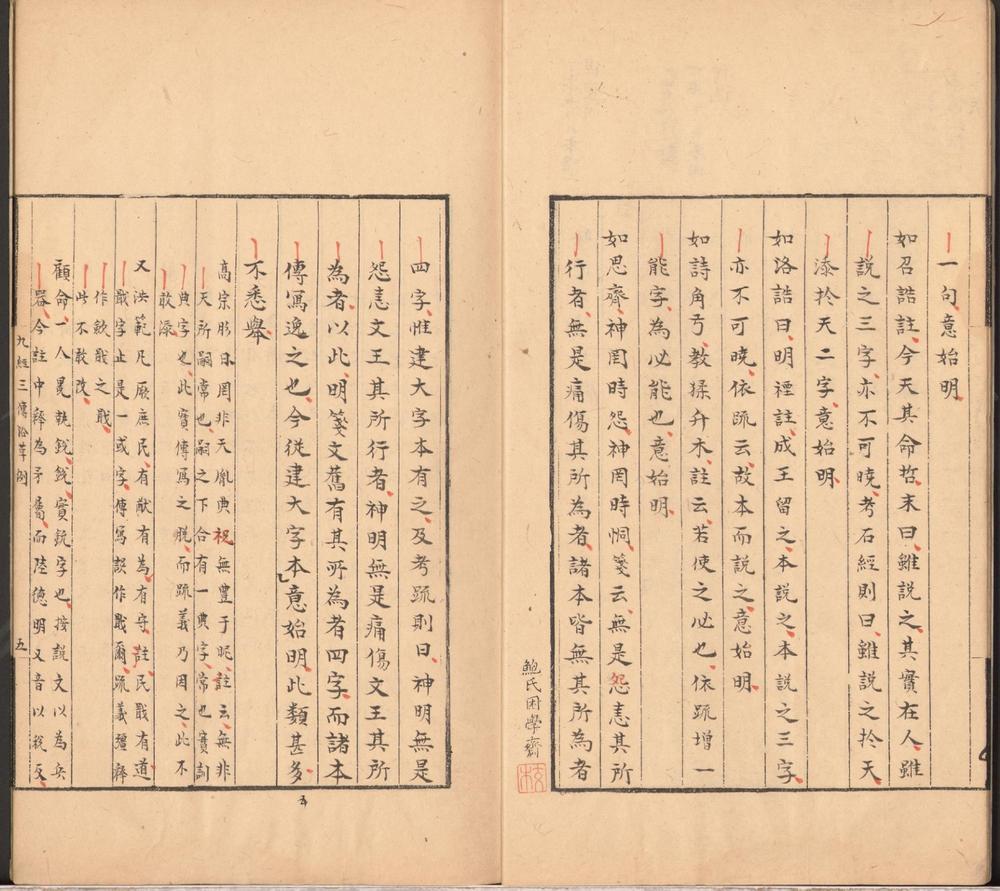 一句意始明
如召誥註今天其命哲末曰雖說之其實在人雖
說之三字亦不可曉考石經則曰雖說之於天
添於天二字意始明
如洛誥曰明禋註成王留之本說之本說之三字
亦不可曉依疏云故本而說之意始明
如詩角弓教猱升木註云若使之必也依疏增一
能字為必能也意始明
如思齊神罔時怨神罔時恫箋云無是怨恚其所
行者無是痛傷其所為者諸本皆無其所為者
鮑氏困學齋
四字惟建大字本有之及考疏則曰神明無是
怨恚文王其所行者神明無是痛傷文王其所
為者以此明箋文舊有其所為者四字而諸本
傳寫逸之也今從建大字本意始明此類甚多
不悉舉
高宗肜日罔非天胤典祀無豐于昵註云無非
天所嗣常也嗣之下合有一典字常也實訓
典字也此實傳寫之脫而疏義乃因之此不
敢添
又洪範凡厥庶民有猷有為有守註民戢有道
戢字止是一或字傳寫誤作戢爾疏義彊釋
作斂戢之戢
此不敢改
顧命一人冕執銳銳實鈗字也按說文以為兵
器今註中釋為矛屬而陸德明又音以稅反
九經三傳沿革例
五
五